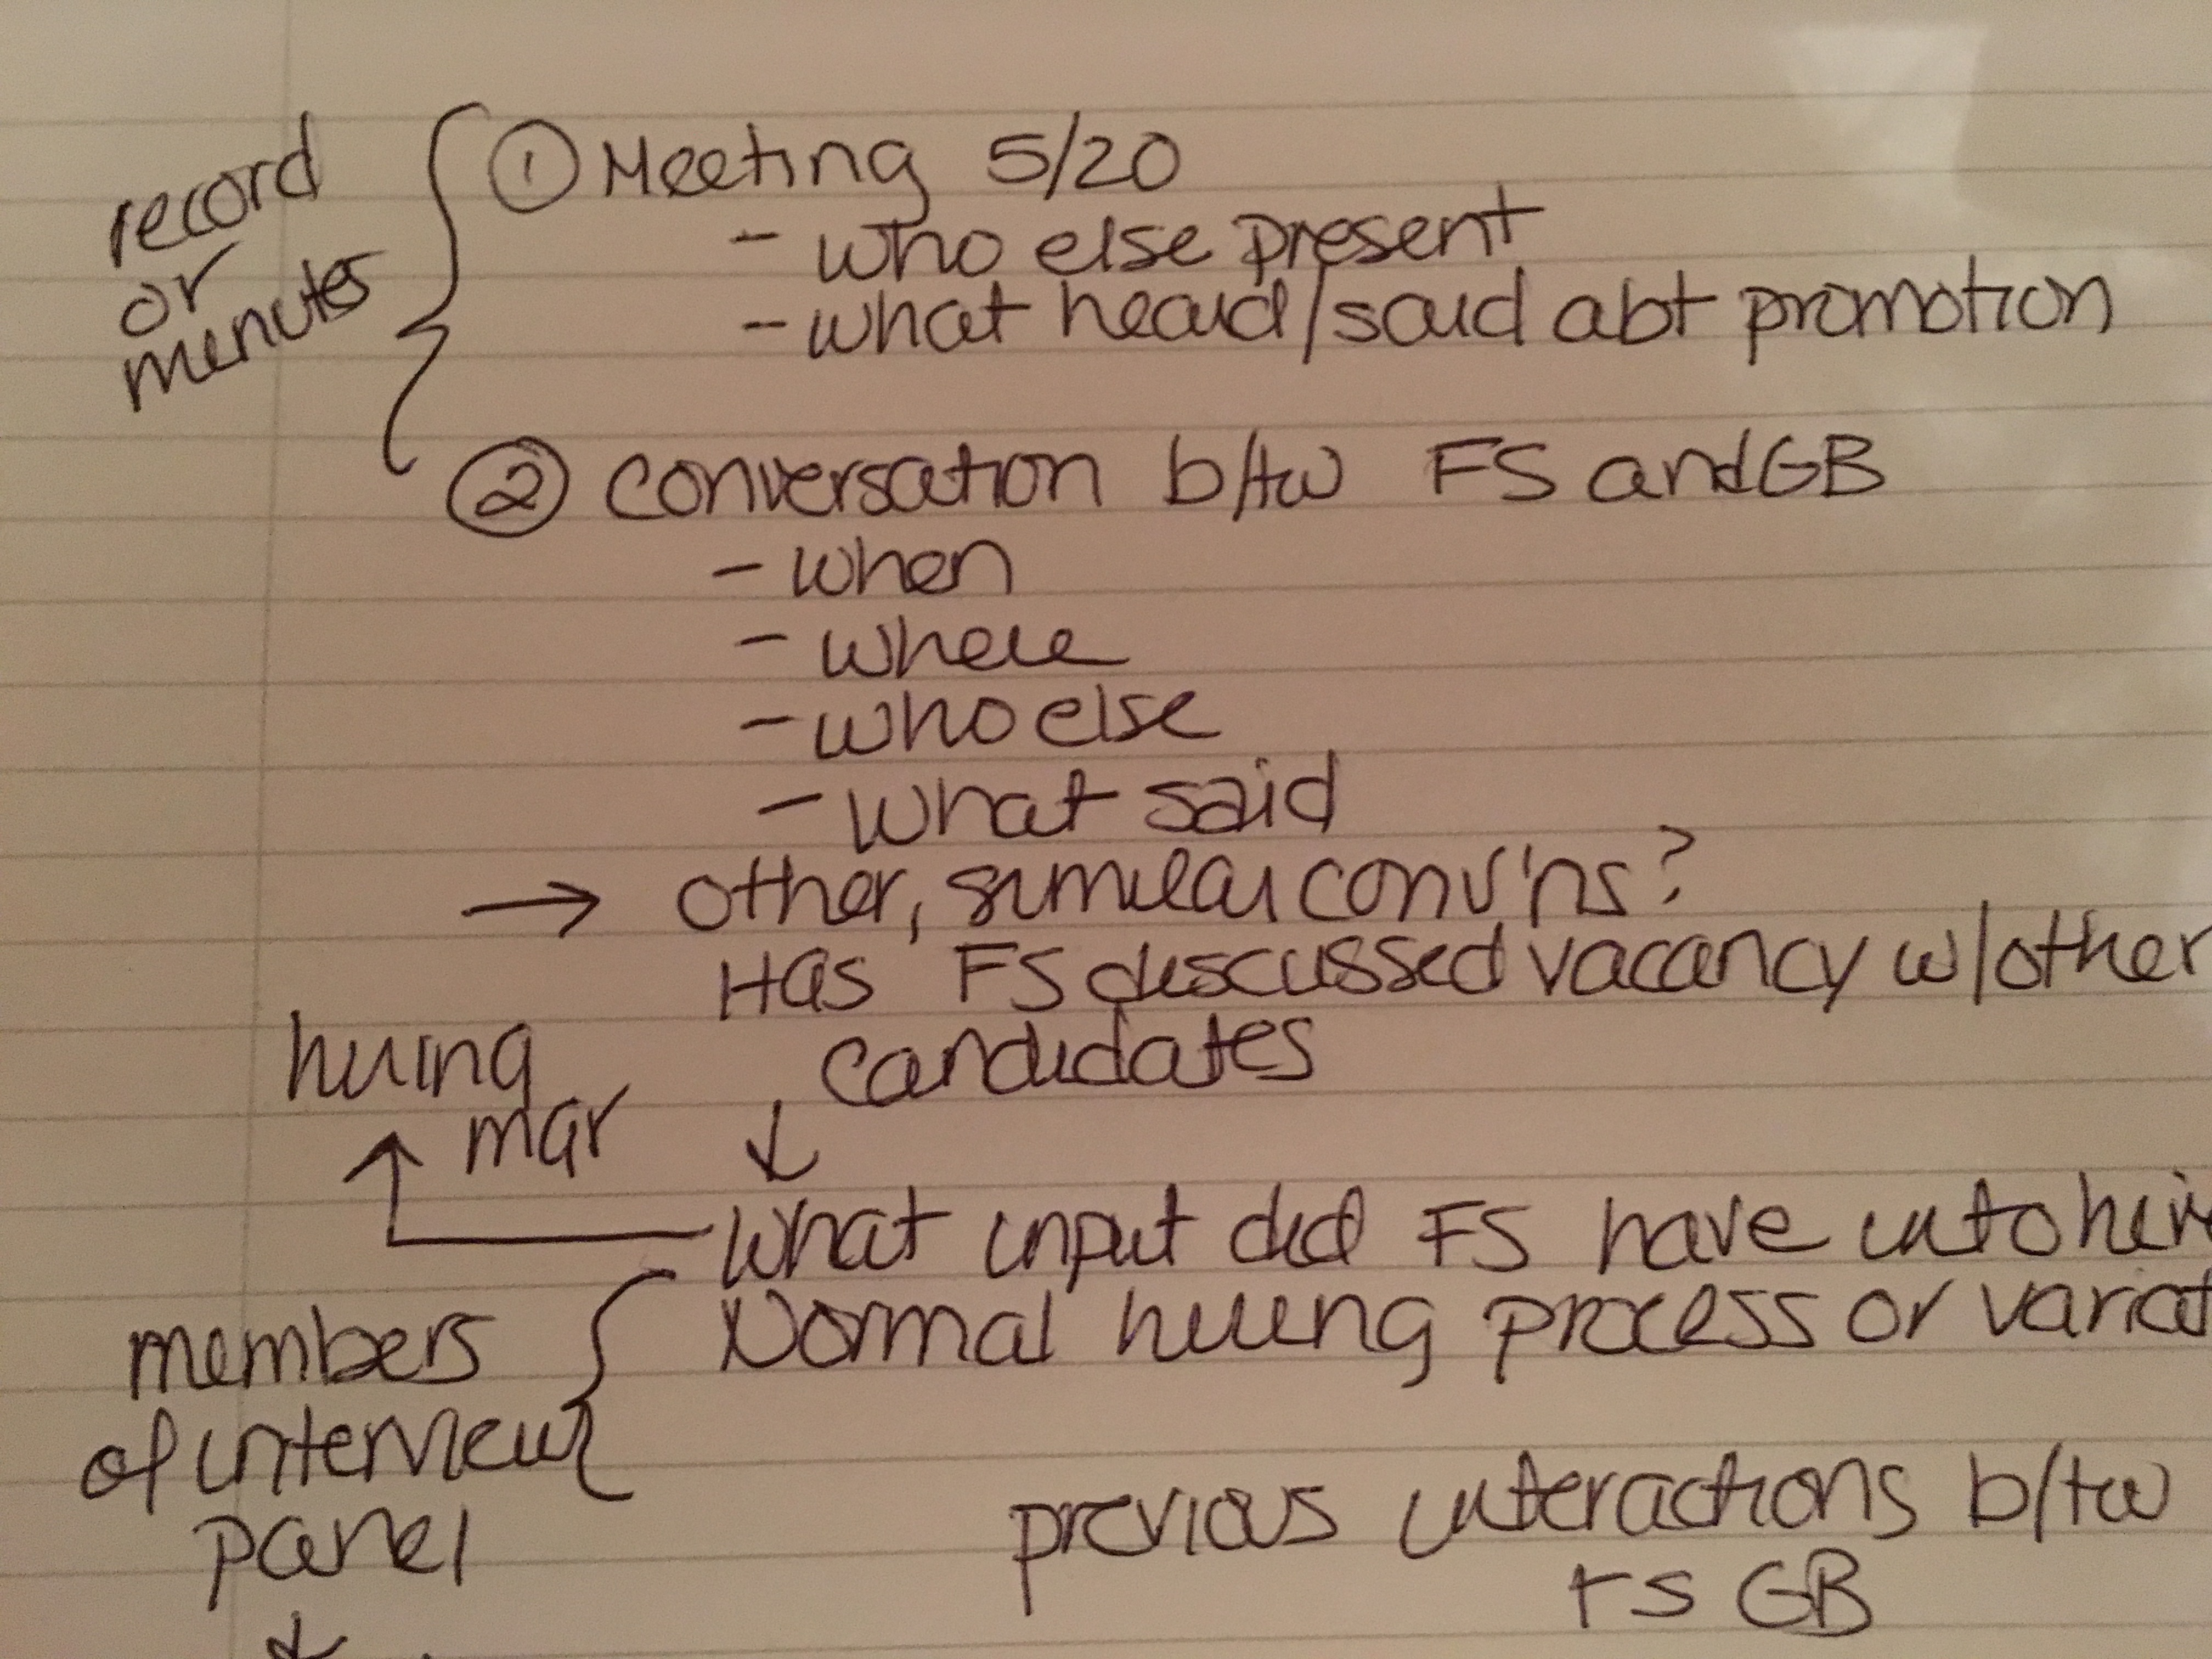 record
or
minutes
① Meeting 5/20
- who else present
- what heard/said abt promotion
② conversation b/tw FS and GB
- when
- where
- who else
- what said
→ other, similar conv'ns?
Has FS discussed vacancy w/other
candidates
↓
hiring
mgr
What input did FS have into hirin
Normal hiring process or variat
members
of interview
panel
↓
previous interactions b/tw
FS GB